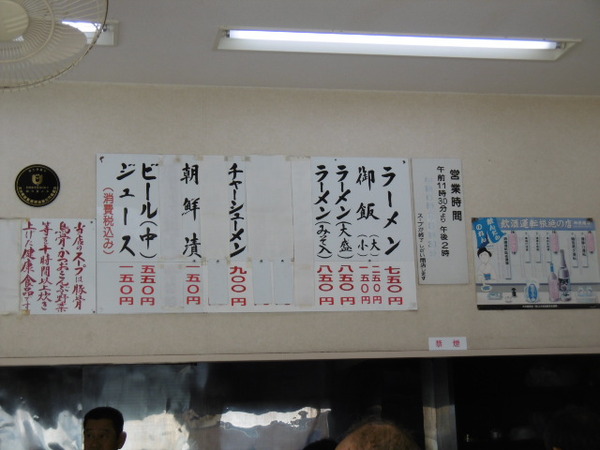 営業時間
午前11時30分より午後2時
ラーメン 七五〇円
御飯(大)二五〇円
(小)一五〇円
ラーメン(大盛)八五〇円
ラーメン(みそ入)八五〇円
チャーシューメン 九〇〇円
朝鮮漬 一五〇円
ビール(中)五五〇円
ジュース 一五〇円
(消費税込み)
当店のスープは豚骨
鳥骨かつおこんぶ野菜
等を8時間以上炊き
上げた健康食品です
飲酒運転根絶の店
禁煙